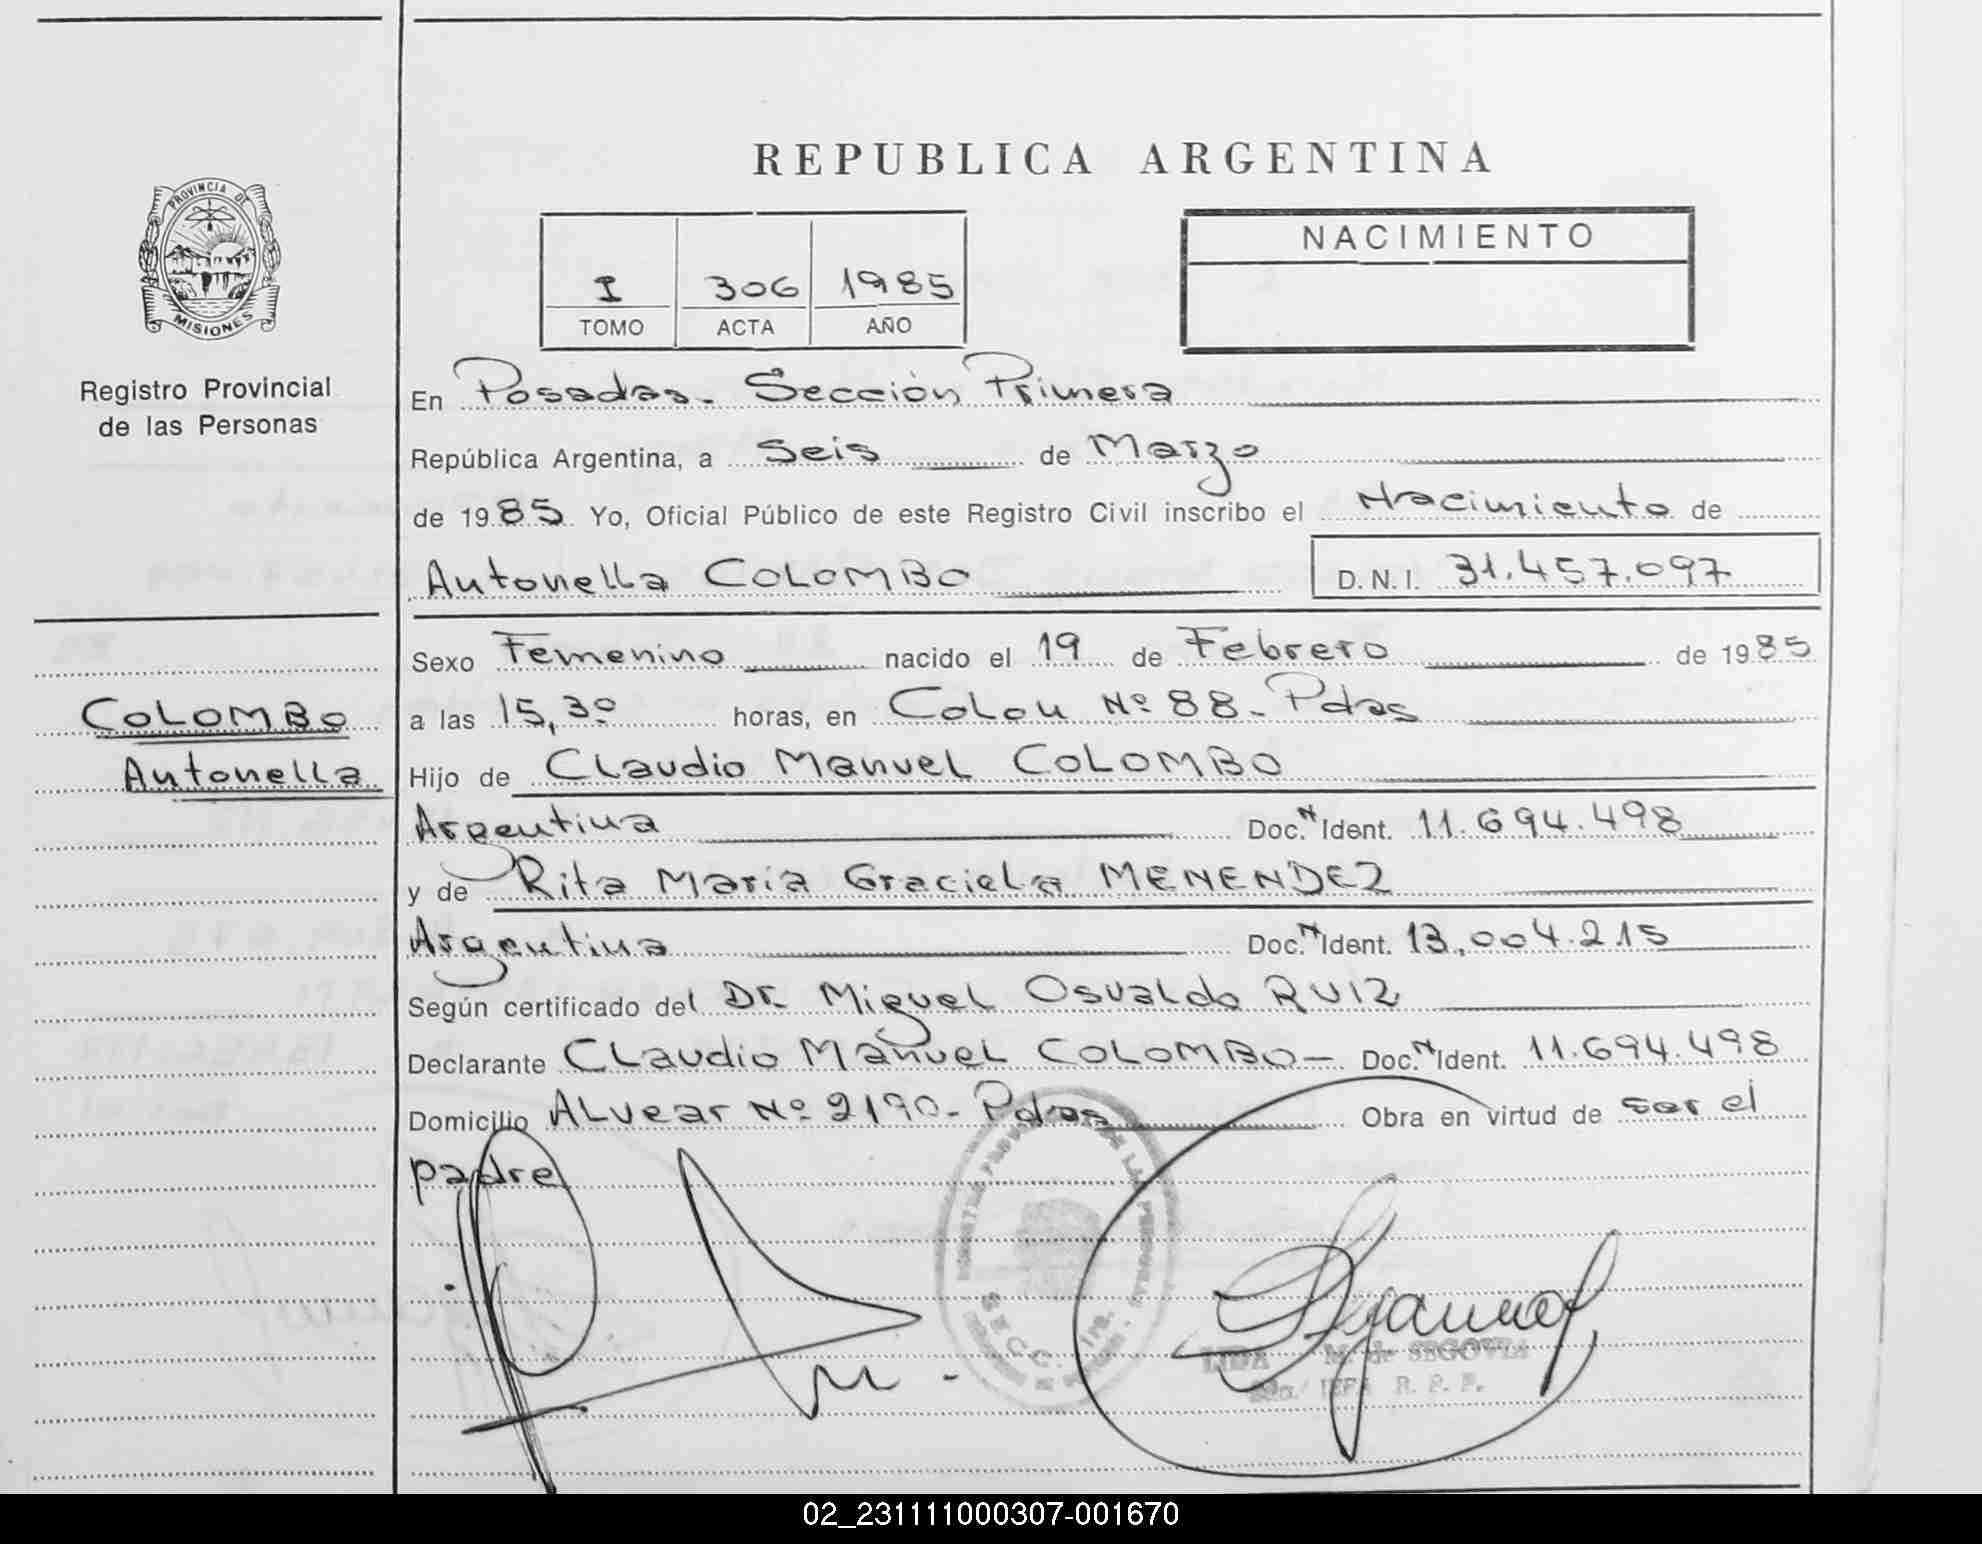 REPUBLICA ARGENTINA
PROVINCIA DE
MISIONES
Registro Provincial
de las Personas
I 306 1985
TOMO ACTA AÑO
NACIMIENTO
En Posadas. Sección Primera
República Argentina, a Seis de Marzo
de 1985 Yo, Oficial Público de este Registro Civil inscribo el Nacimiento de
Antonella COLOMBO D.N.I. 31.457.097
Sexo Femenino nacido el 19 de Febrero de 1985
COLOMBO
Antonella
a las 15,30 horas, en Colon Nº 88 - Pdas
Hijo de Claudio Manuel COLOMBO
Argentina Doc. N Ident. 11.694.498
y de Rita Maria Graciela MENENDEZ
Argentina Doc. N Ident. 13.004.215
Según certificado del Dr. Miguel Osvaldo RUIZ
Declarante Claudio Manuel COLOMBO - Doc. N Ident. 11.694.498
Domicilio Alvear Nº 2190 - Pdas Obra en virtud de ser el
padre
SECC. 1ra.
LIDA M. de SEGOVIA
JEFA R. P. P.
02_231111000307-001670